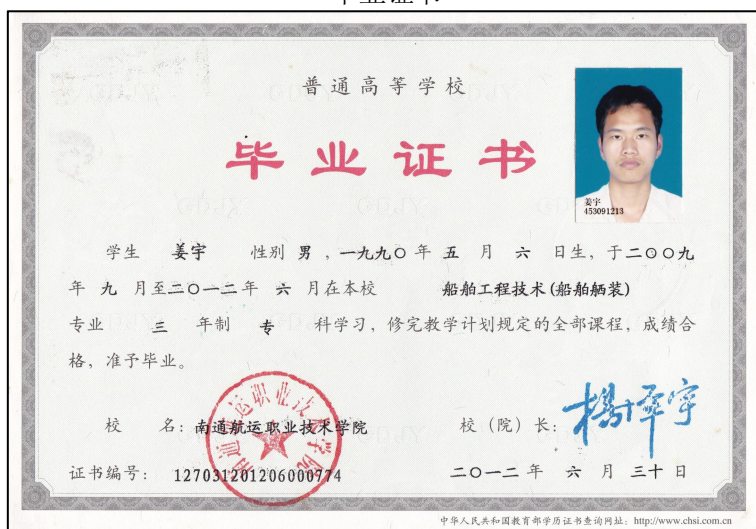 毕业证书
普通高等学校
毕业证书
姜宇
453091213
学生 姜宇 性别 男 ，一九九〇 年 五 月 六 日生，于二〇〇九
年 九 月至二〇一二年 六 月在本校 船舶工程技术(船舶舾装)
专业 三 年制 专 科学习，修完教学计划规定的全部课程，成绩合
格，准予毕业。
校 名：南通航运职业技术学院
南通航运职业技术学院
校（院）长：
证书编号： 127031201206000774
二〇一二 年 六 月 三十 日
中华人民共和国教育部学历证书查询网址：http://www.chsi.com.cn